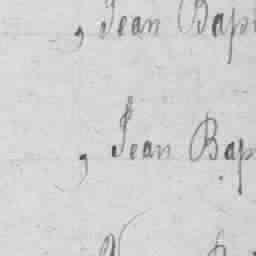 , Jean Bap
, Jean Bap